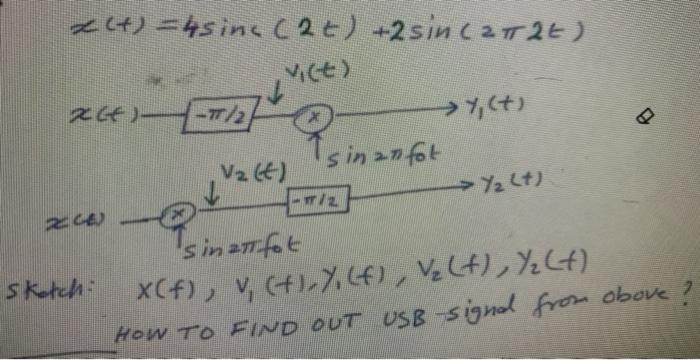 x(t) = 4sinc(2t) + 2sin(2π2t)
v₁(t)
x(t) -π/2 x y₁(t)
sin2πfot
v₂(t)
x(t) x -π/2 y₂(t)
sin2πfot
Sketch: X(f), V₁(f), Y₁(f), V₂(f), Y₂(f)
HOW TO FIND OUT USB signal from above?